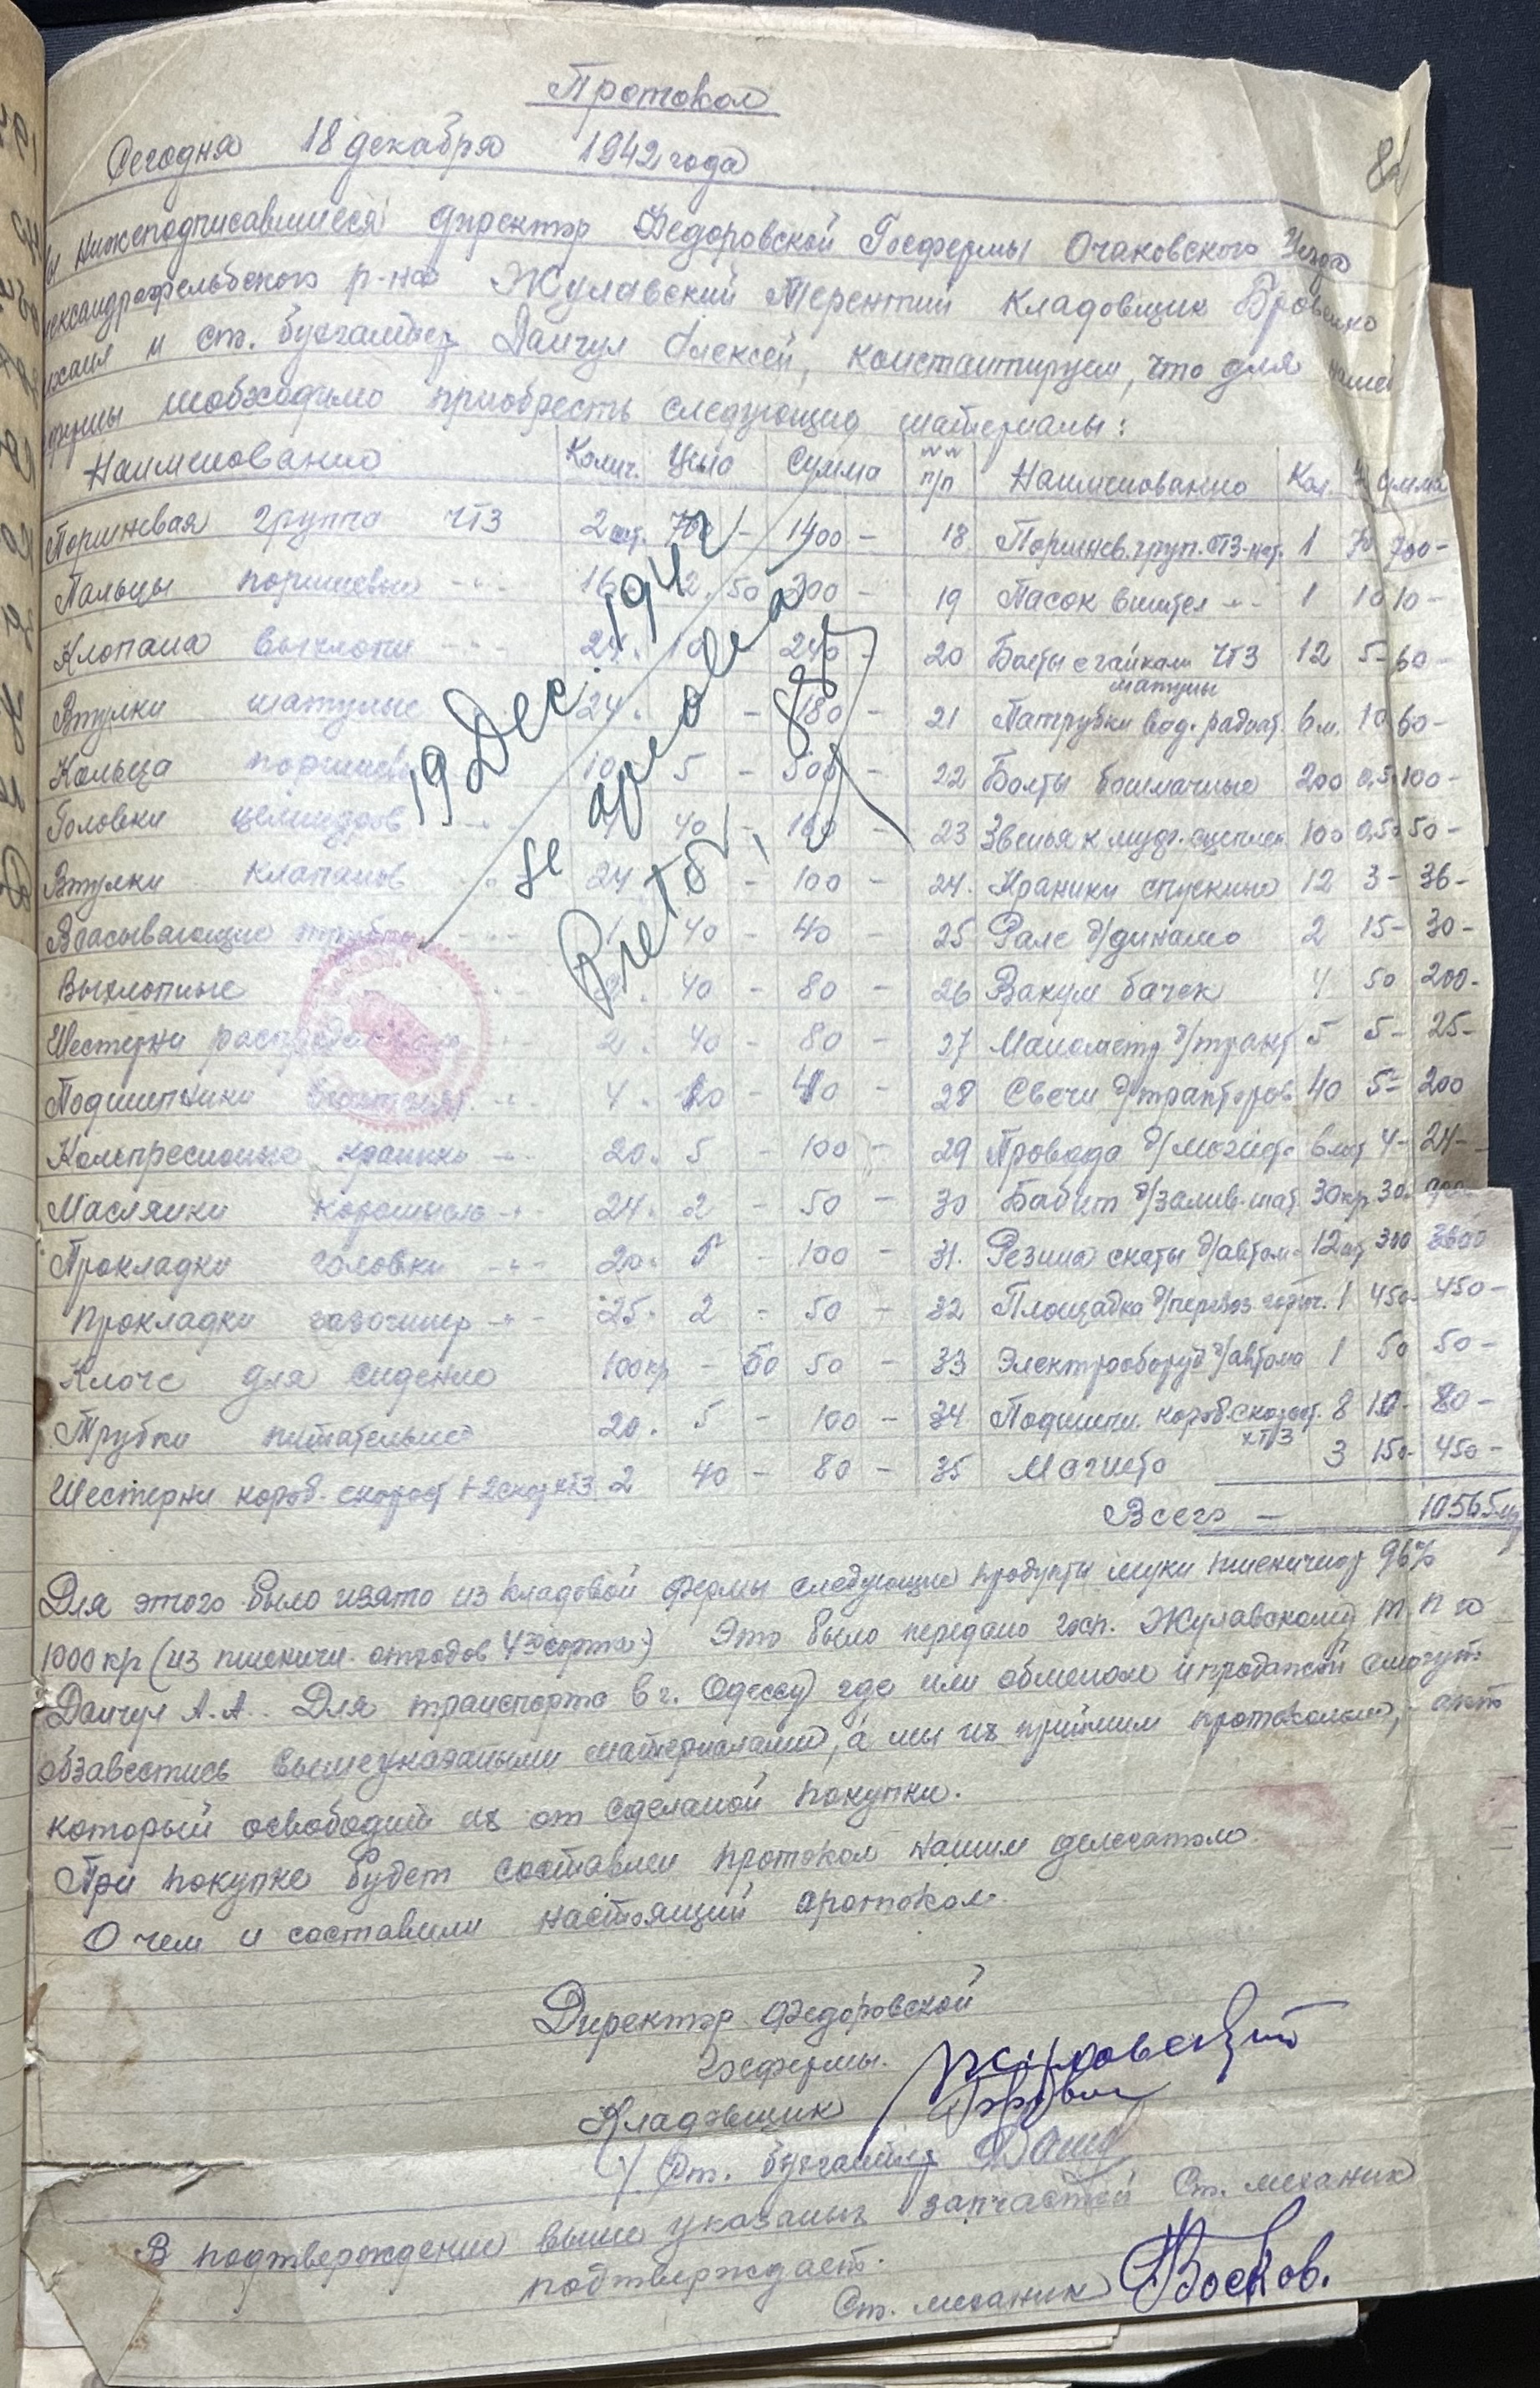 Протокол
Сегодня 18 декабря 1942 года
82
Нижеподписавшиеся директор Федоровской Госфермы Очаковского Уезда
р-на Жулавский Терентий кладовщик
и ст. бухгалтер Данчул Алексей, констатируем, что для нашей
фермы необходимо приобресть следующие материалы:
Наименование Колич. Цена Сумма №№ п/п Наименование Кол. Ц Сумма
Поршневая группа ЧТЗ 2 шт. 700 - 1400 - 18 Поршнев. груп. СТЗ-нат. 1 70 700-
Пальцы поршневые -"- 16. 12.50 200 - 19 Пасок вентел -"- 1 10 10-
Клопана выхлопн -"- 24. 10 240 - 20 Болты с гайками ЧТЗ 12 5- 60-
шатуны
Втулки шатуные 24. - 180 - 21 Патрубки вод. радиат. 6 м. 10 60-
Кольца поршневы 10 5 - 500 - 22 Болты башмачные 200 0,5 100-
Головки целиндров -"- 4 40 - 160 - 23 Звенья к муфт. сцеплен 100 0,50 50-
Втулки клапанов -"- 24 - 100 - 24. Краники спускные 12 3- 36-
Всасывающие трубы -"- 1 40 - 40 - 25 Рале д/динамо 2 15- 30-
Выхлопные 2. 40 - 80 - 26 Вакум бачек 4 50 200-
Шестерни 2. 40 - 80 - 27 Манометр д/тракт 5 5- 25-
Подшипники -"- 4. 10 - 40 - 28 Свечи д/тракторов 40 5- 200
Компресионые краники -"- 20. 5 - 100 - 29 Провода д/магнето 6 мот 4- 24-
Маслянки коромысло -"- 24. 2 - 50 - 30 Бабит д/залив. шат. 30 кгр 30- 900-
Прокладки головки -"- 20. 5 - 100 - 31. Резина скаты д/автом. 12 шт 300 3600
Прокладки газогенер -"- 25. 2 - 50 - 32 Площадка д/перевоз. горюч. 1 450- 450-
Клоче для сидения 100 кгр - 50 50 - 33 Электрооборуд д/автома 1 50 50-
Трубки питательные 20. 5 - 100 - 34 Подшипн. короб. скорост. 8 10- 80-
ХТЗ
Шестерни короб. скорост 1+2 скор ХТЗ 2 40 - 80 - 35 Магнето 3 150- 450-
Всего - 10565
19 Dec. 1942
se aprobă
Pretor,
Для этого было изято из кладовой фермы следующие продукты муки пшеничной 96%
1000 кгр (из пшеничн. отходов 4го сорта) Это было передано госп. Жулавскому Т. П и
Данчул А. А. Для транспорта в г. Одессу где или обменом и продажей смогут
обзавестись вышеуказаными материалами, а мы их примим протоколом, - акто
который освободит их от сделаной покупки.
При покупке будет составлен протокол нашим делегатом
О чем и составили настоящий протокол.
Директор Федоровской
Госфермы.
Кладовщик
Ст. бухгалтер
В подтверждение выше указаных запчастей Ст. механик
подтверждает.
Ст. механик